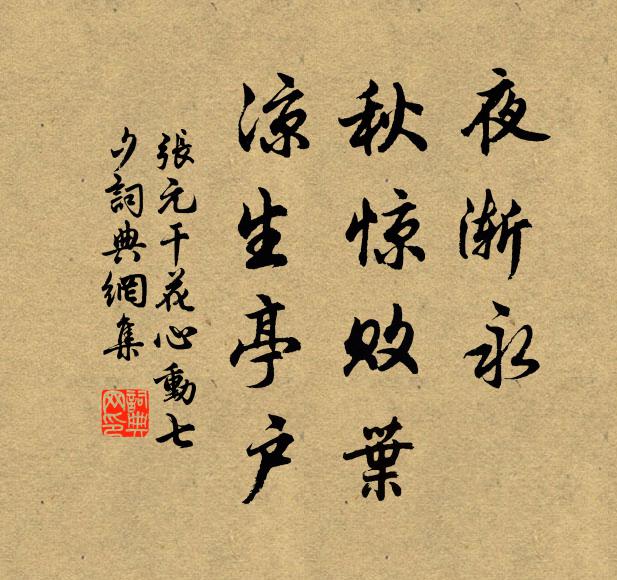 夜渐永
秋惊败葉
凉生亭户
張元干花心動七
夕詞典網集
詞典
网印